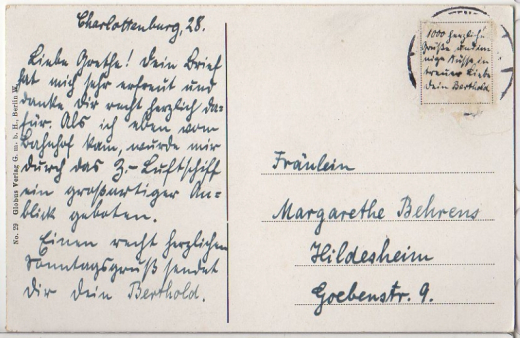 Charlottenburg, 28.
Liebe Grethe! Dein Brief
hat mich sehr erfreut und
danke Dir recht herzlich da-
für. Als ich eben vom
Bahnhof kam, wurde mir
durch das Z.-Luftschiff
ein großartiger An-
blick geboten.
Einen recht herzlichen
Sonntagsgruß sendet
Dir Dein Berthold.
No. 29 Globus Verlag G. m. b. H., Berlin W.
1000 herzliche
Grüße und in-
nige Küsse in
treuer Liebe
Dein Berthold
Fräulein
Margarethe Behrens
Hildesheim
Goebenstr. 9.